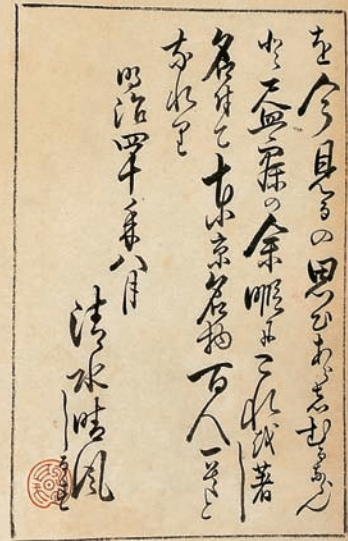 を今見るの思ひあらしむるなん
と盡霖の余暇にこれを著し
名付て東京名物百人一首と
なれり
明治四十年八月
清水晴風
しるす